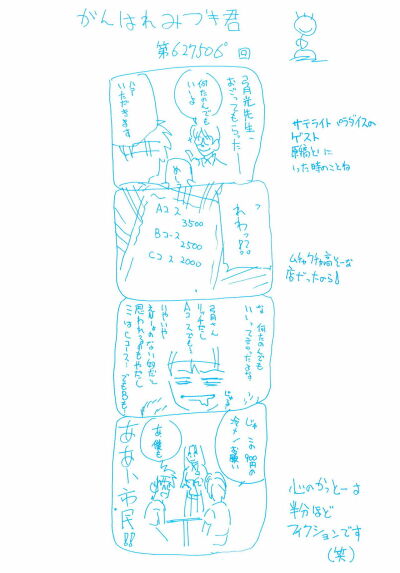 がんばれみづき君
第627506回
弓月光先生、
おごってもらったー
何たのんでも
いーよ
ハァ
いただきます
めしっ
サテライト パラダイスの
ゲスト
原稿とりに
いった時のことね
わわっ!?
Aコース
3500
Bコース
2500
Cコース 2000
ムチャクチャ高そーな
店だったのら!
な 何たのんでも
いーって言ったよな
弓月さん
リッチだし
Aコースでも…
いやいや
思われるのもやだし
ここはCコース… でもBも…
じゃ この900円の
冷メンお願い
あ 僕も
ああ、市民!!
心のかっとーは
半分ほど
フィクションです
(笑)